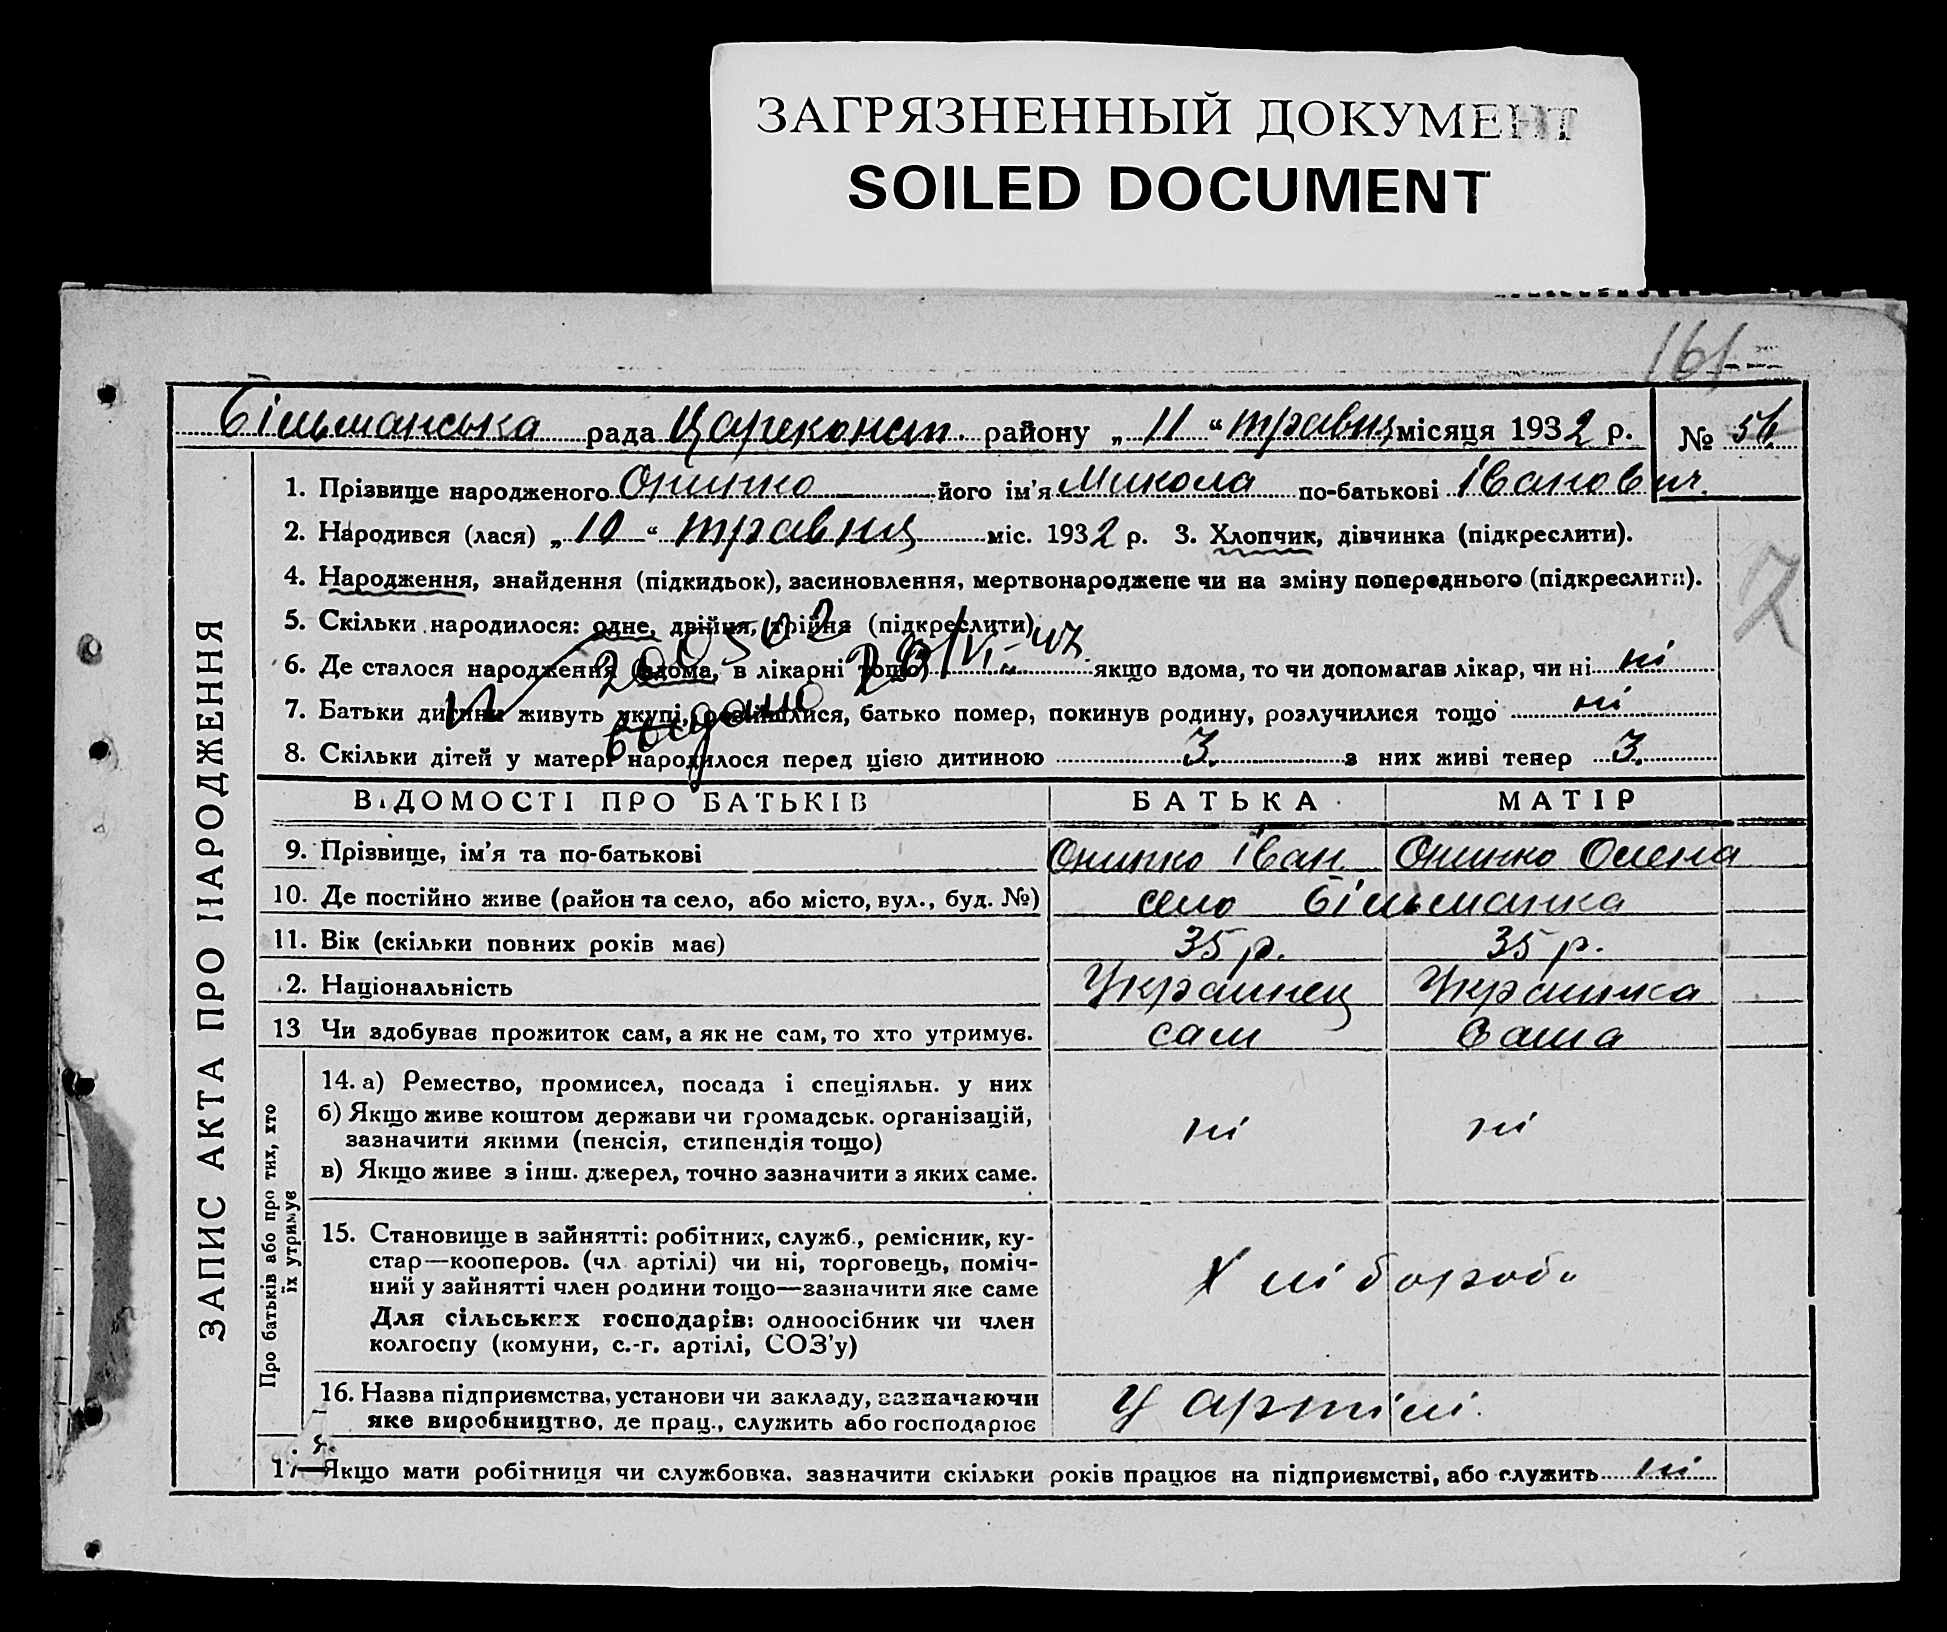 ЗАГРЯЗНЕННЫЙ ДОКУМЕНТ
SOILED DOCUMENT
161
Більманська рада Цареконст. району „11“ травня місяця 1932 р. №
ЗАПИС АКТА ПРО НАРОДЖЕННЯ
1. Прізвище народженого Онипко його ім'я Микола по-батькові Іванович.
2. Народився (лася) „10“ травня міс. 1932 р. 3. Хлопчик, дівчинка (підкреслити).
4. Народження, знайдення (підкидьок), засиновлення, мертвонароджене чи на зміну попереднього (підкреслити).
5. Скільки народилося: одне, двійня, трійня (підкреслити)
6. Де сталося народження вдома, в лікарні тощо) якщо вдома, то чи допомагав лікар, чи ні ні
7. Батьки дитини живуть вкупі, розійшлися, батько помер, покинув родину, розлучилися тощо ні
видано
8. Скільки дітей у матері народилося перед цією дитиною 3. з них живі тепер 3.
ВІДОМОСТІ ПРО БАТЬКІВ БАТЬКА МАТІР
9. Прізвище, ім'я та по-батькові Онипко Іван Онипко Олена
10. Де постійно живе (район та село, або місто, вул., буд. №) село Більманка
11. Вік (скільки повних років має) 35 р. 35 р.
2. Національність Украинец Украинка
13 Чи здобуває прожиток сам, а як не сам, то хто утримує. сам сама
Про батьків або про тих, хто
їх утримує
14. а) Ремество, промисел, посада і спеціяльн. у них
б) Якщо живе коштом держави чи громадськ. організацій,
зазначити якими (пенсія, стипендія тощо) ні ні
в) Якщо живе з інш. джерел, точно зазначити з яких саме.
15. Становище в зайнятті: робітник, служб., ремісник, ку-
стар—кооперов. (чл. артілі) чи ні, торговець, поміч-
ний у зайнятті член родини тощо—зазначити яке саме Хлібороби
Для сільських господарів: одноосібник чи член
колгоспу (комуни, с.-г. артілі, СОЗ'у)
16. Назва підприємства, установи чи закладу, зазначаючи У артілі.
яке виробництво, де прац., служить або господарює
17 Якщо мати робітниця чи службовка, зазначити скільки років працює на підприємстві, або служить ні